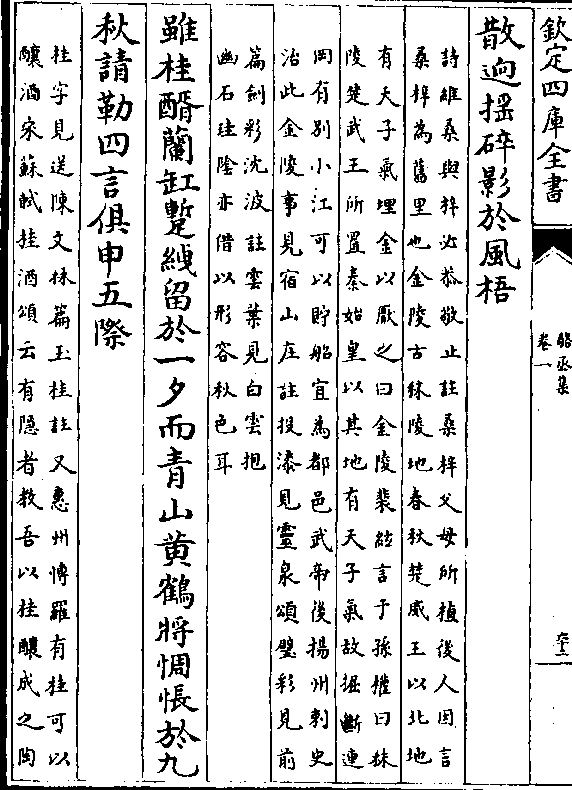 欽定四庫全書
駱丞集
卷一
散迥搖碎影於風梧
詩維桑與梓必恭敬止註桑梓父母所植後人因言
桑梓為舊里也金陵古秣陵地春秋楚威王以北地
有天子氣埋金以厭之曰金陵裴紹言于孫權曰秣
陵楚武王所置秦始皇以其地有天子氣故掘斷連
岡有別小江可以貯船宜為都邑武帝後揚州刺史
治此金陵事見宿山庄註投漆見靈泉頌璧彩見前
篇劍彩沈波註雲葉見白雲抱
幽石珪陰亦借以形容秋色耳
雖桂醑蘭缸蹔絏留於一夕而青山黄鶴將惆悵於九
秋請勒四言俱申五際
桂字見送陳文林篇玉桂註又惠州博羅有桂可以
釀酒宋蘇軾桂酒頌云有隱者教吾以桂釀成之陶